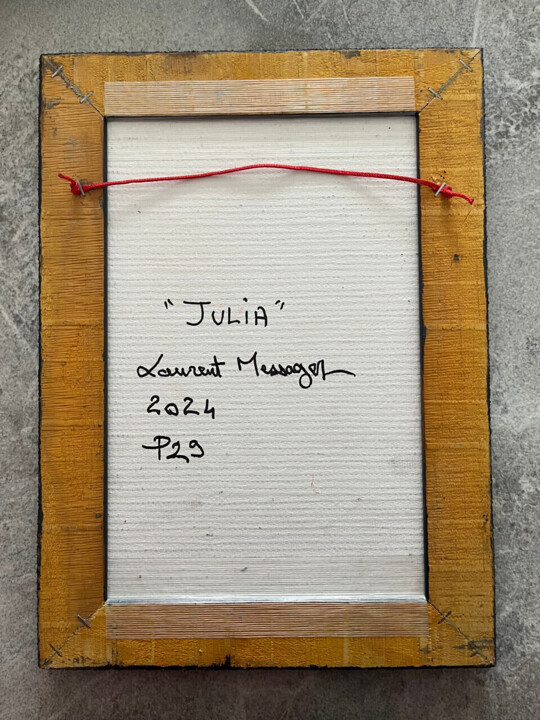 "JULIA"
Laurent Messager
2024
P29